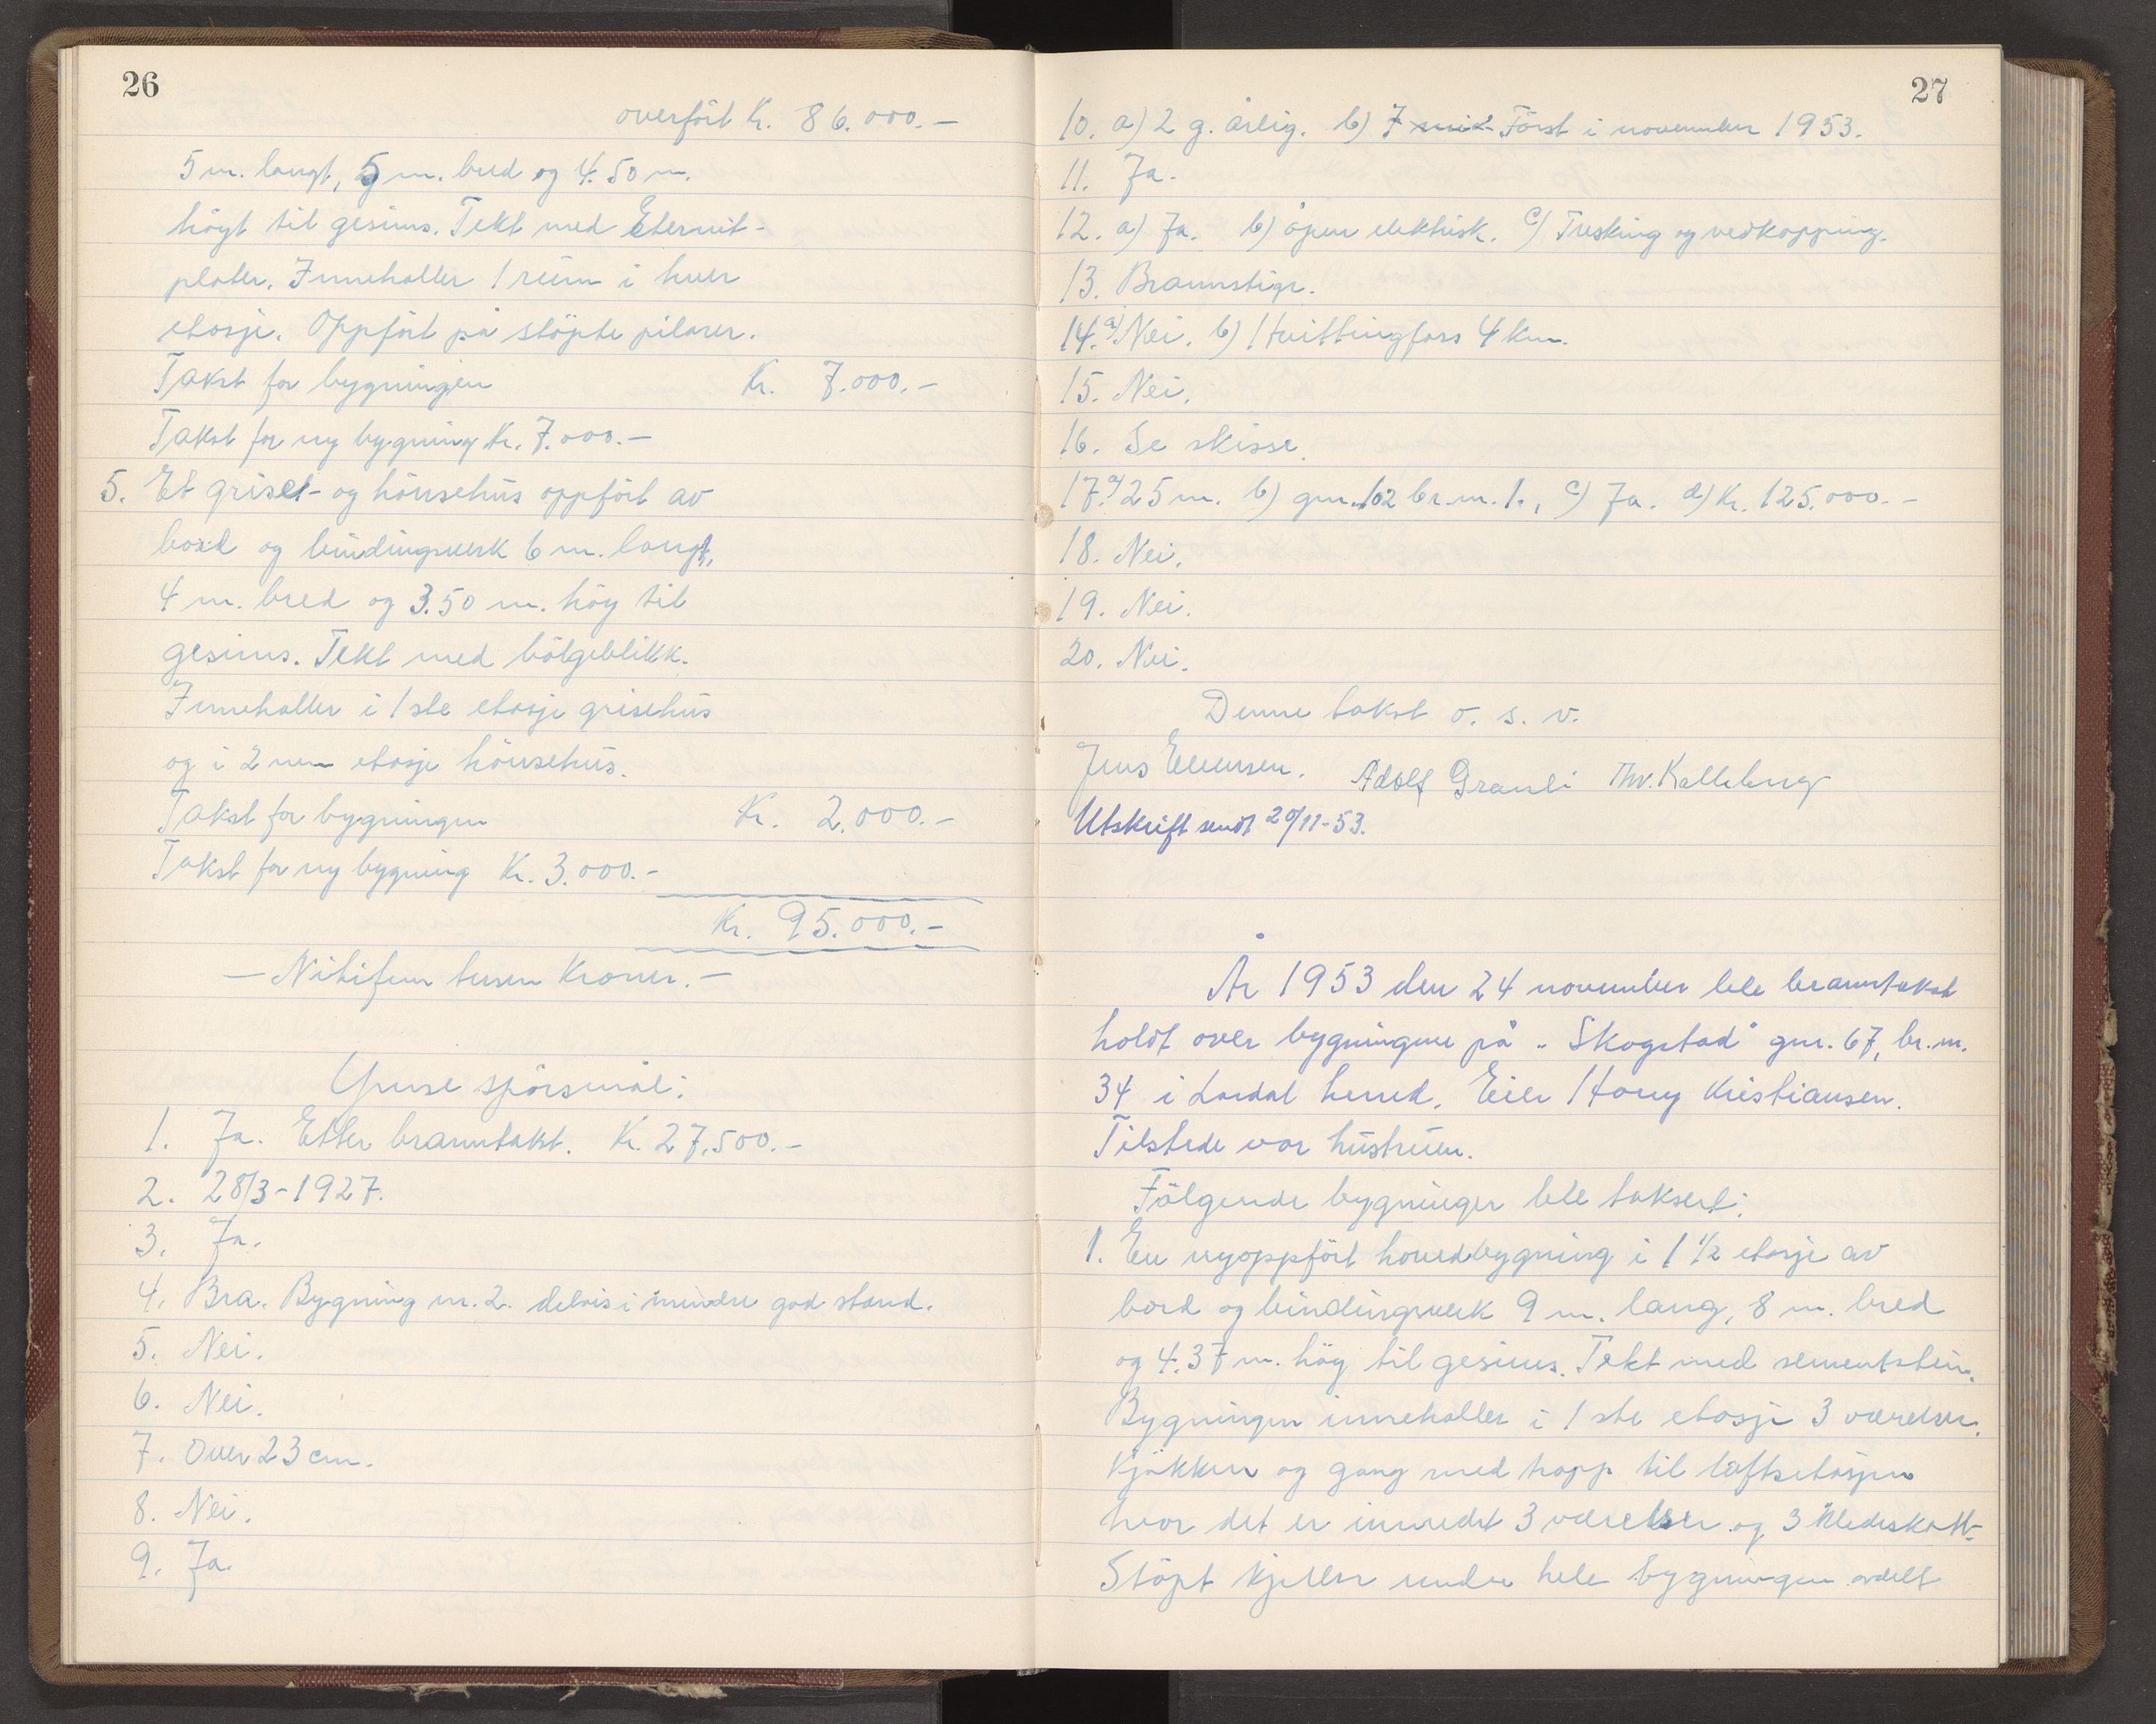 26
overfört Kr. 86.000.-
5 m. langt, 5 m. bred og 4.50 m.
högt til gesims. Tekt med Eternit-
plater. Inneholler 1 rum i hver
etasje. Oppfört på stöpte pilarer.
Takst for bygningen Kr. 7.000.-
Takst for ny bygning Kr. 7.000.-
5. Et grise- og hönsehus oppfört av
bord og bindingsverk 6 m. langt,
4 m. bred og 3.50 m. höy til
gesims. Tekt med bölgeblikk.
Inneholler i 1ste etasje grisehus
og i 2nen etasje hönsehus.
Takst for bygningen Kr. 2.000.-
Takst for ny bygning Kr. 3.000.-
Kr. 95.000.-
- Nitifem tusen Kroner. -
Ymse spörsmål:
1. Ja. Etter branntakst. Kr. 27.500.-
2. 28/3-1927.
3. Ja.
4. Bra. Bygning nr. 2. delvis i mindre god stand.
5. Nei.
6. Nei.
7. Over 23 cm.
8. Nei.
9. Ja.
27
10. a) 2 g. årlig. b) Först i november 1953.
11. Ja.
12. a) Ja. b) åpen elektrisk. c) Tresking og vedkapping.
13. Brannstige.
14. a) Nei. b) Hvittingfoss 4 km.
15. Nei.
16. Se skisse.
17. a) 25 m. b) gnr. 102 br.nr. 1., c) Ja. d) Kr. 125.000.-
18. Nei.
19. Nei.
20. Nei.
Denne takst o. s. v.
Jens Evensen. Adolf Granli Thv. Kalleberg
Utskrift sendt 20/11-53.
År 1953 den 24 november ble branntakst
holdt over bygningene på "Skogstad" gnr. 67, br.nr.
34 i Lardal herred. Eier Harry Kristiansen.
Tilstede var hustruen.
Fölgende bygninger ble taksert:
1. En nyoppfört hovedbygning i 1 1/2 etasje av
bord og bindingsverk 9 m. lang, 8 m. bred
og 4.37 m. höy til gesims. Tekt med sementstein.
Bygningen inneholler i 1ste etasje 3 værelser.
Kjökken og gang med trapp til loftsetasjen
hvor det er innredet 3 værelser og 3 kledeskott.
Stöpt kjeller under hele bygningen avdelt